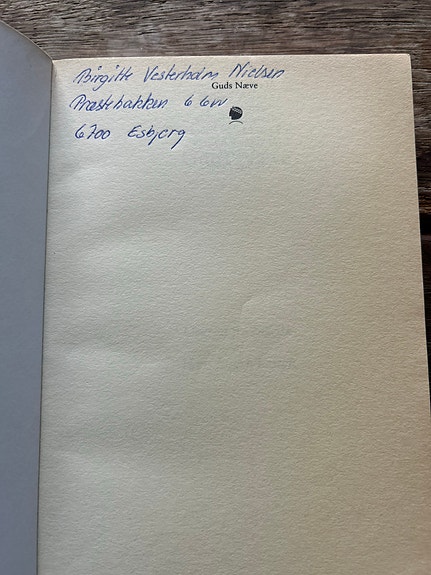 Birgitte Vesterholm Nielsen
Guds Næve
Præstebakken 6 6vv
6700 Esbjerg